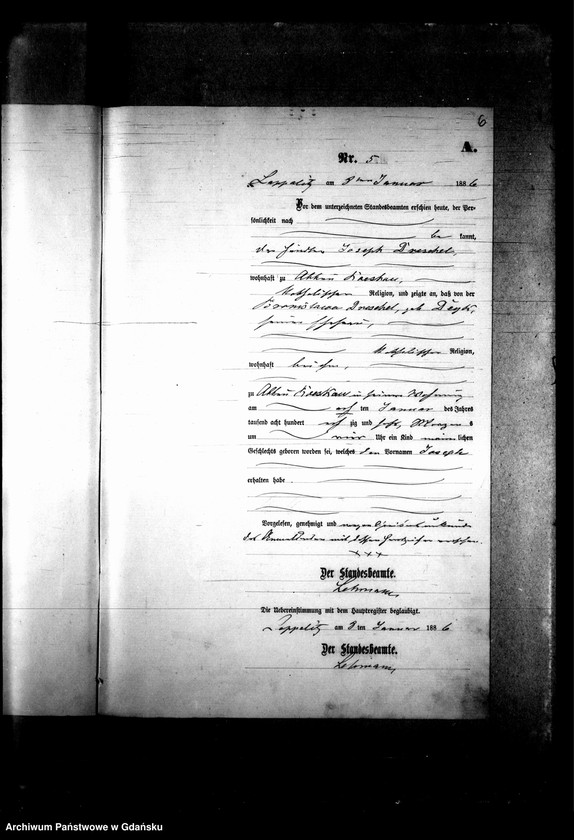 6
A.
Nr. 5
am 3 ten Januar 1886
Vor dem unterzeichneten Standesbeamten erschien heute, der Per-
sönlichkeit nach
be kannt,
der Händler Joseph Dreschel,
wohnhaft zu Abbau
katholischer Religion, und zeigte an, daß von der
Bronislawa Dreschel, geb.
seiner Ehefrau,
katholischer Religion,
wohnhaft bei ihm,
zu Abbau in seiner Wohnung
am ten Januar des Jahres
tausend acht hundert acht zig und sechs, Morgens
um vier Uhr ein Kind männlichen
Geschlechts geboren worden sei, welches den Vornamen Joseph
erhalten habe
Vorgelesen, genehmigt und wegen
des mit dessen Handzeichen versehen.
+++
Der Standesbeamte.
Lehmann
Die Uebereinstimmung mit dem Hauptregister beglaubigt.
am 3 ten Januar 1886
Der Standesbeamte.
Lehmann
Archiwum Państwowe w Gdańsku